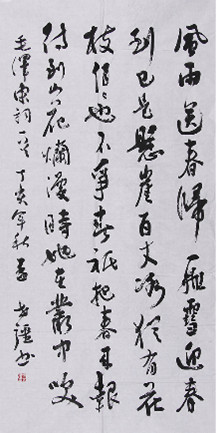 風雨送春歸飛雪迎春
到已是懸崖百丈冰猶有花
枝俏俏也不爭春祇把春來報
待到山花爛漫時她在叢中笑
毛澤東詞一首丁亥年秋